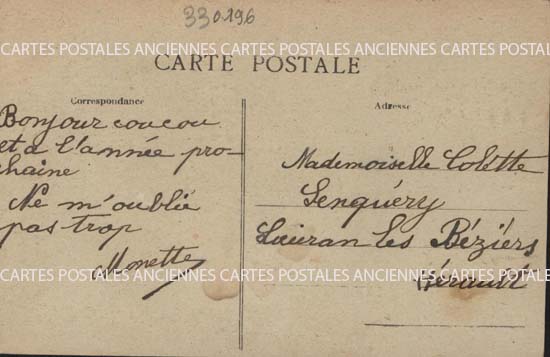 330196
CARTES POSTALES ANCIENNES CARTES POSTALES ANCIENNES CARTES POSTALES
CARTE POSTALE
Correspondance
Adresse
Bonjour coucou
et a l'année pro-
chaine
Ne m'oublie
pas trop
Monette
Mademoiselle Colette
Senquéry
Lieuran les Béziers
Hérault
CARTES POSTALES ANCIENNES CARTES POSTALES ANCIENNES CARTES POSTALES